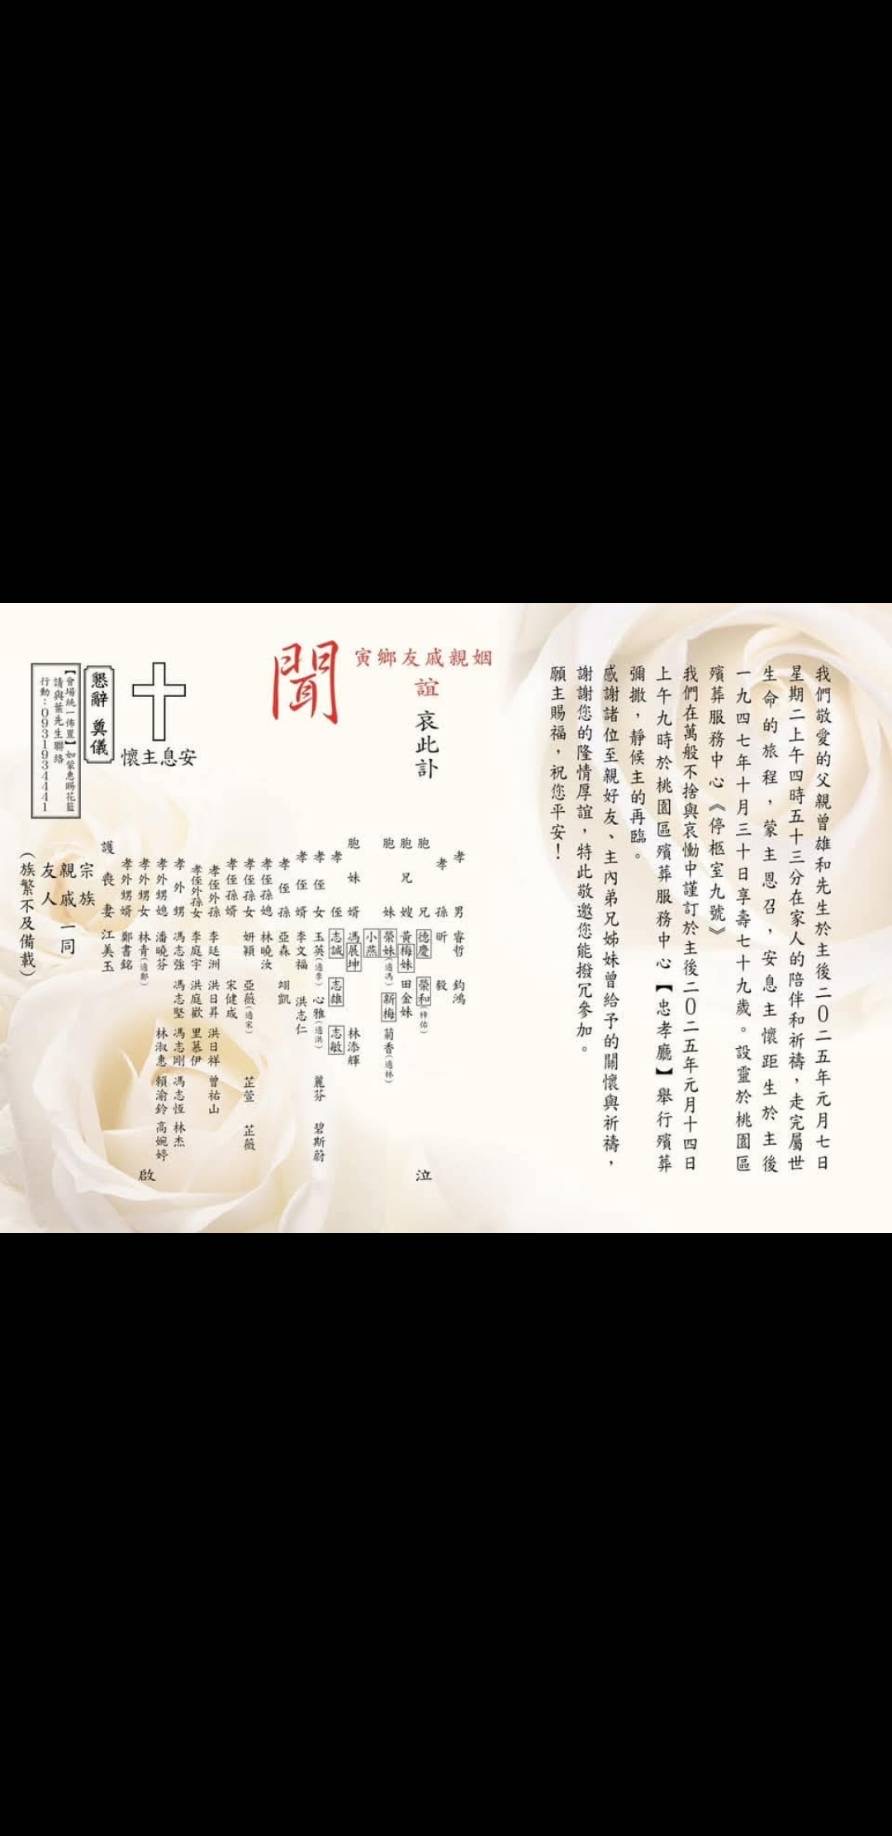 我們敬愛的父親曾雄和先生於主後二0二五年元月七日
星期二上午四時五十三分在家人的陪伴和祈禱，走完屬世
生命的旅程，蒙主恩召，安息主懷距生於主後
一九四七年十月三十日享壽七十九歲。設靈於桃園區
殯葬服務中心《停柩室九號》
我們在萬般不捨與哀慟中謹訂於主後二0二五年元月十四日
上午九時於桃園區殯葬服務中心【忠孝廳】舉行殯葬
彌撒，靜候主的再臨。
感謝諸位至親好友、主內弟兄姊妹曾給予的關懷與祈禱，
謝謝您的隆情厚誼，特此敬邀您能撥冗參加。
願主賜福，祝您平安！
寅鄉友戚親姻
誼 哀此訃
聞
孝男 睿哲 鈞鴻
孝孫 昕毅
胞兄 德慶 榮和(梓佑)
胞兄嫂 黃梅妹 田金妹
胞妹 榮妹(適馮) 新梅 菊香(適林)
小燕
胞妹婿 馮展坤 林添輝
孝侄 志誠 志雄 志敏
孝侄女 玉英(適李) 心雅(適洪) 麗芬 碧斯蔚
孝侄婿 李文福 洪志仁
孝侄孫 亞森 翊凱
孝侄孫媳 林曉汝
孝侄孫女 妍穎 亞薇(適宋) 芷萱 芷薇
孝侄孫婿 宋健成
孝侄外孫 李廷洲 洪日昇 洪日祥 曾祐山
孝侄外孫女 李庭宇 洪庭歡 里慕伊
孝外甥 馮志強 馮志堅 馮志剛 馮志恆 林杰
孝外甥媳 潘曉芬 林淑惠 賴渝鈴 高婉婷
孝外甥女 林青(適鄭)
孝外甥婿 鄭書銘
護喪妻 江美玉
泣
啟
宗族
親戚一同
友人
(族繁不及備載)
懷主息安
懇辭 奠儀
【會場統一佈置】如蒙惠賜花籃
請與葉先生聯絡
行動：0931934441